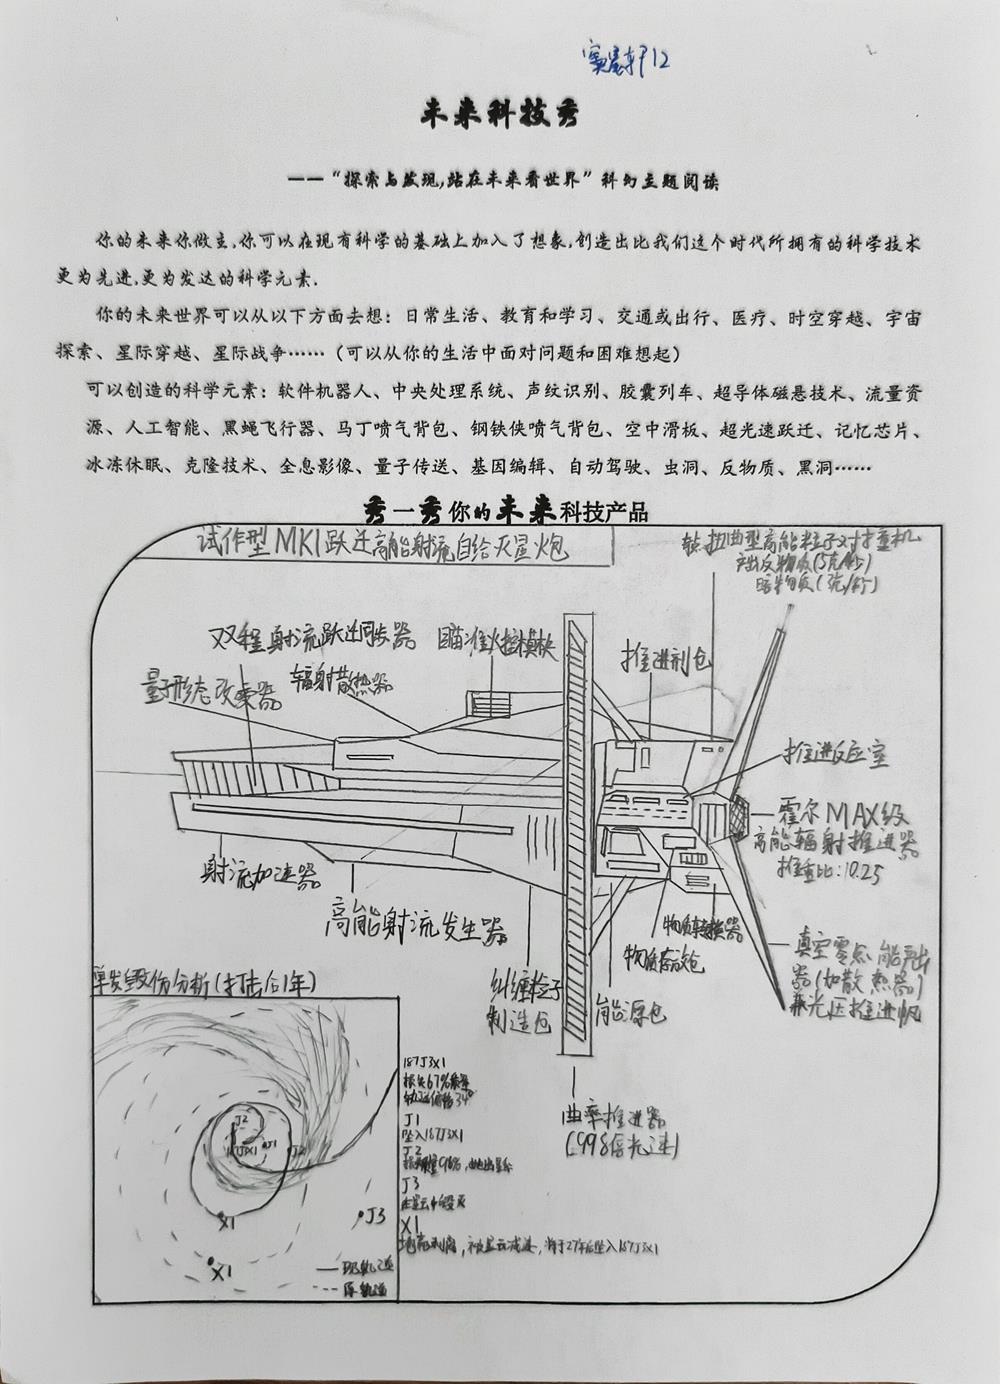 12
未来科技秀
——“探索与发现，站在未来看世界”科幻主题阅读
你的未来你做主，你可以在现有科学的基础上加入了想象，创造出比我们这个时代所拥有的科学技术
更为先进，更为发达的科学元素．
你的未来世界可以从以下方面去想：日常生活、教育和学习、交通或出行、医疗、时空穿越、宇宙
探索、星际穿越、星际战争……（可以从你的生活中面对问题和困难想起）
可以创造的科学元素：软件机器人、中央处理系统、声纹识别、胶囊列车、超导体磁悬技术、流量资
源、人工智能、黑蝇飞行器、马丁喷气背包、钢铁侠喷气背包、空中滑板、超光速跃迁、记忆芯片、
冰冻休眠、克隆技术、全息影像、量子传送、基因编辑、自动驾驶、虫洞、反物质、黑洞……
秀一秀你的未来科技产品
试作型MK1跃迁高能射流自给灭星炮
扭曲型高能粒子对撞机
产出反物质(5克/秒)
暗物质(3克/秒)
双程射流跃迁同步器
瞄准火控模块
推进剂仓
量子形态改变器
辐射散热器
推进反应室
霍尔MAX级
高能辐射推进器
推重比:10.25
射流加速器
高能射流发生器
物质转换器
物质存放仓
真空零点能产出
器(加散热器)
兼光压推进帆
纠缠粒子
制造仓
能源仓
曲率推进器
(998倍光速)
单发毁伤分析(打击后1年)
187J3X1
损失67%质量
轨道偏移34°
J1
坠入187J3X1
J2
J3
X1
J2
J1
J2
X1
J3
X1
现轨道
原轨道